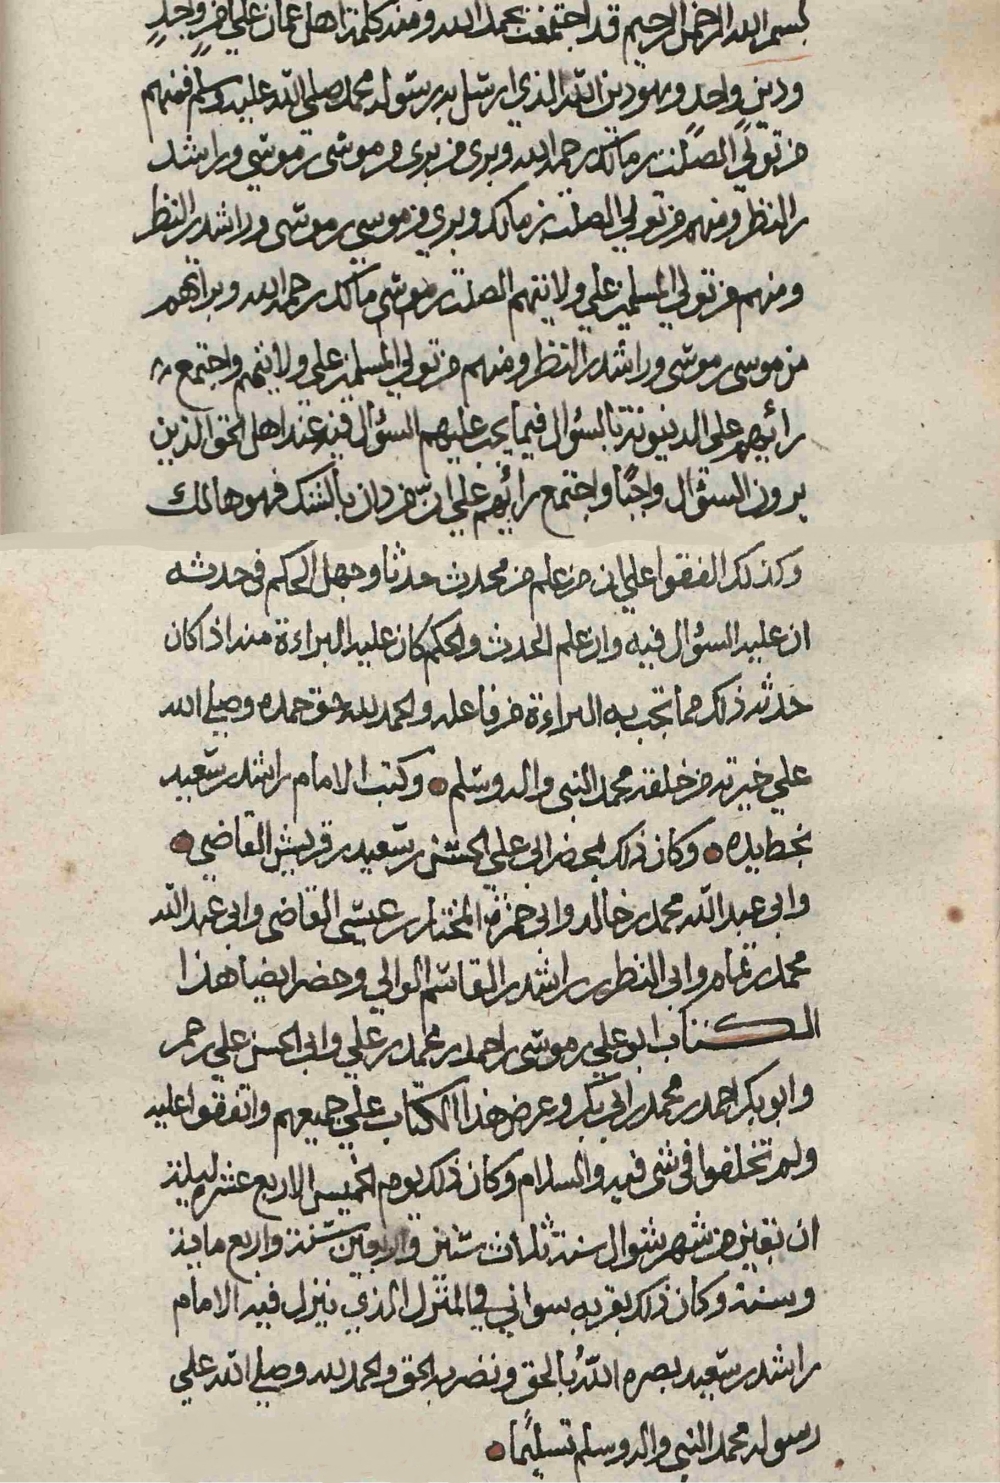 بسم الله الرحمن الرحيم قد اجتمعت بحمد الله ومنه كلمة اهل عمان علي امر واحد
ودين واحد وهو دين الله الذي ارسل به رسوله محمد صلي الله عليه وسلم فمنهم
من تولي الصلت بن مالك رحمه الله وبرى من برى من موسى بن موسي وراشد
بن النظر ومنهم من تولي الصلت بن مالك وبري من موسي بن موسى وراشد بن النظر
ومنهم من تولي المسلمين علي ولايتهم الصلت بن مالك رحمه الله وبراتهم
من موسى بن موسى وراشد بن النظر ومنهم من تولي المسلمين علي ولايتهم واجتمع
رائيهم علي الدينونة بالسؤال فيما يجب عليهم السؤال فيه عند اهل الحق الذين
يرون السؤال واجبًا واجتمع رائيهم علي ان من دان بالشك فهو هالك
وكذلك اتفقوا علي ان من علم من محدث حدثا وجهل الحكم في حدثه
ان عليه السؤال فيه وان علم الحدث والحكم كان عليه البراءة منه اذا كان
حدثه ذلك مما تجب به البراءة من فاعله والحمد لله حق حمده وصلي الله
علي خيرته من خلقه محمد النبي واله وسلم وكتب الامام راشد بن سعيد
بخط يده وكان ذلك بمحضر ابي علي الحسن بن سعيد بن قريش القاضي
وابي عبد الله محمد بن خالد وابي حمزة المختار بن عيسى القاضي وابي عبد الله
محمد بن تمام وابي النظر بن راشد بن القاسم الوالي وحضر ايضا هذا
الكتاب ابو علي بن موسى بن احمد بن محمد بن علي وابي الحسن علي بن عمر
وابو بكر احمد بن محمد بن ابي بكر وعرض هذا الكتاب علي جميعهم واتفقوا عليه
ولم تختلفوا في شى فيه والسلام وكان ذلك يوم الخميس لاربع عشر ليلة
ان بقين من شهر شوال سنة ثلاث سنين واربعين سنة واربع ماية
وسنة وكان ذلك بقرية سوني في المنزل الذي ينزل فيه الامام
راشد بن سعيد نصره الله بالحق ونصر به الحق والحمد لله وصلي الله علي
رسوله محمد النبي واله وسلم تسليمًا